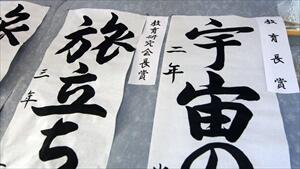 教育長賞
宇宙の
二年
教育研究会長賞
旅立ち
三年